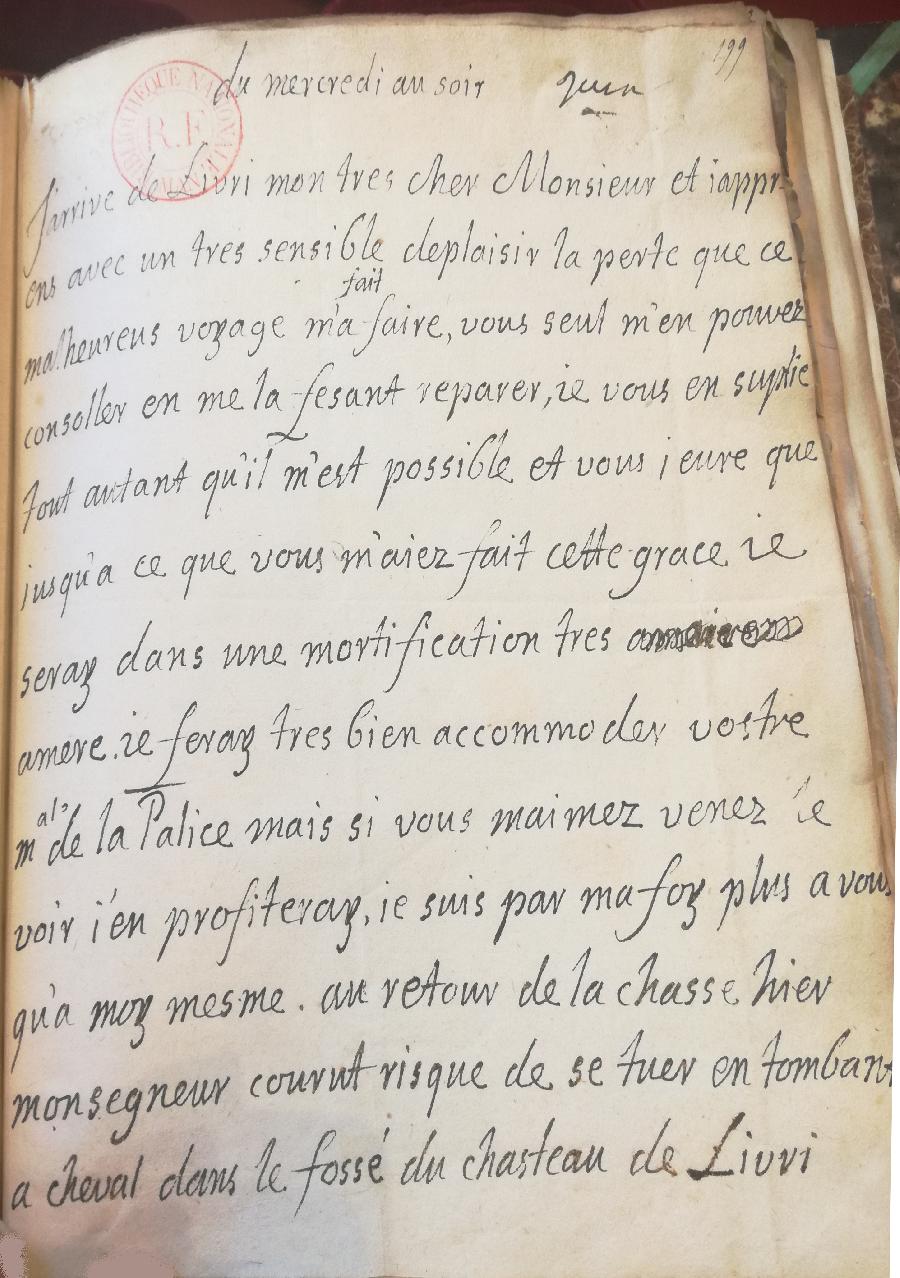 199
du mercredi au soir juin
BIBLIOTHEQUE NATIONALE R.F. MAN
J'arrive de Livri mon tres cher Monsieur et i'appr-
ens avec un tres sensible deplaisir la perte que ce
fait
malheureus voyage m'a faire, vous seul m'en pouvez
consoller en me la fesant reparer, ie vous en suplie
tout autant qu'il m'est possible et vous ieure que
iusqu'a ce que vous m'aiez fait cette grace ie
seray dans une mortification tres
amere. ie feray tres bien accommoder vostre
mal de la Palice mais si vous maimez venez le
voir i'en profiteray, ie suis par ma foy plus a vous
qu'a moy mesme. au retour de la chasse hier
monsegneur courut risque de se tuer en tombant
a cheval dans le fossé du chasteau de Livri